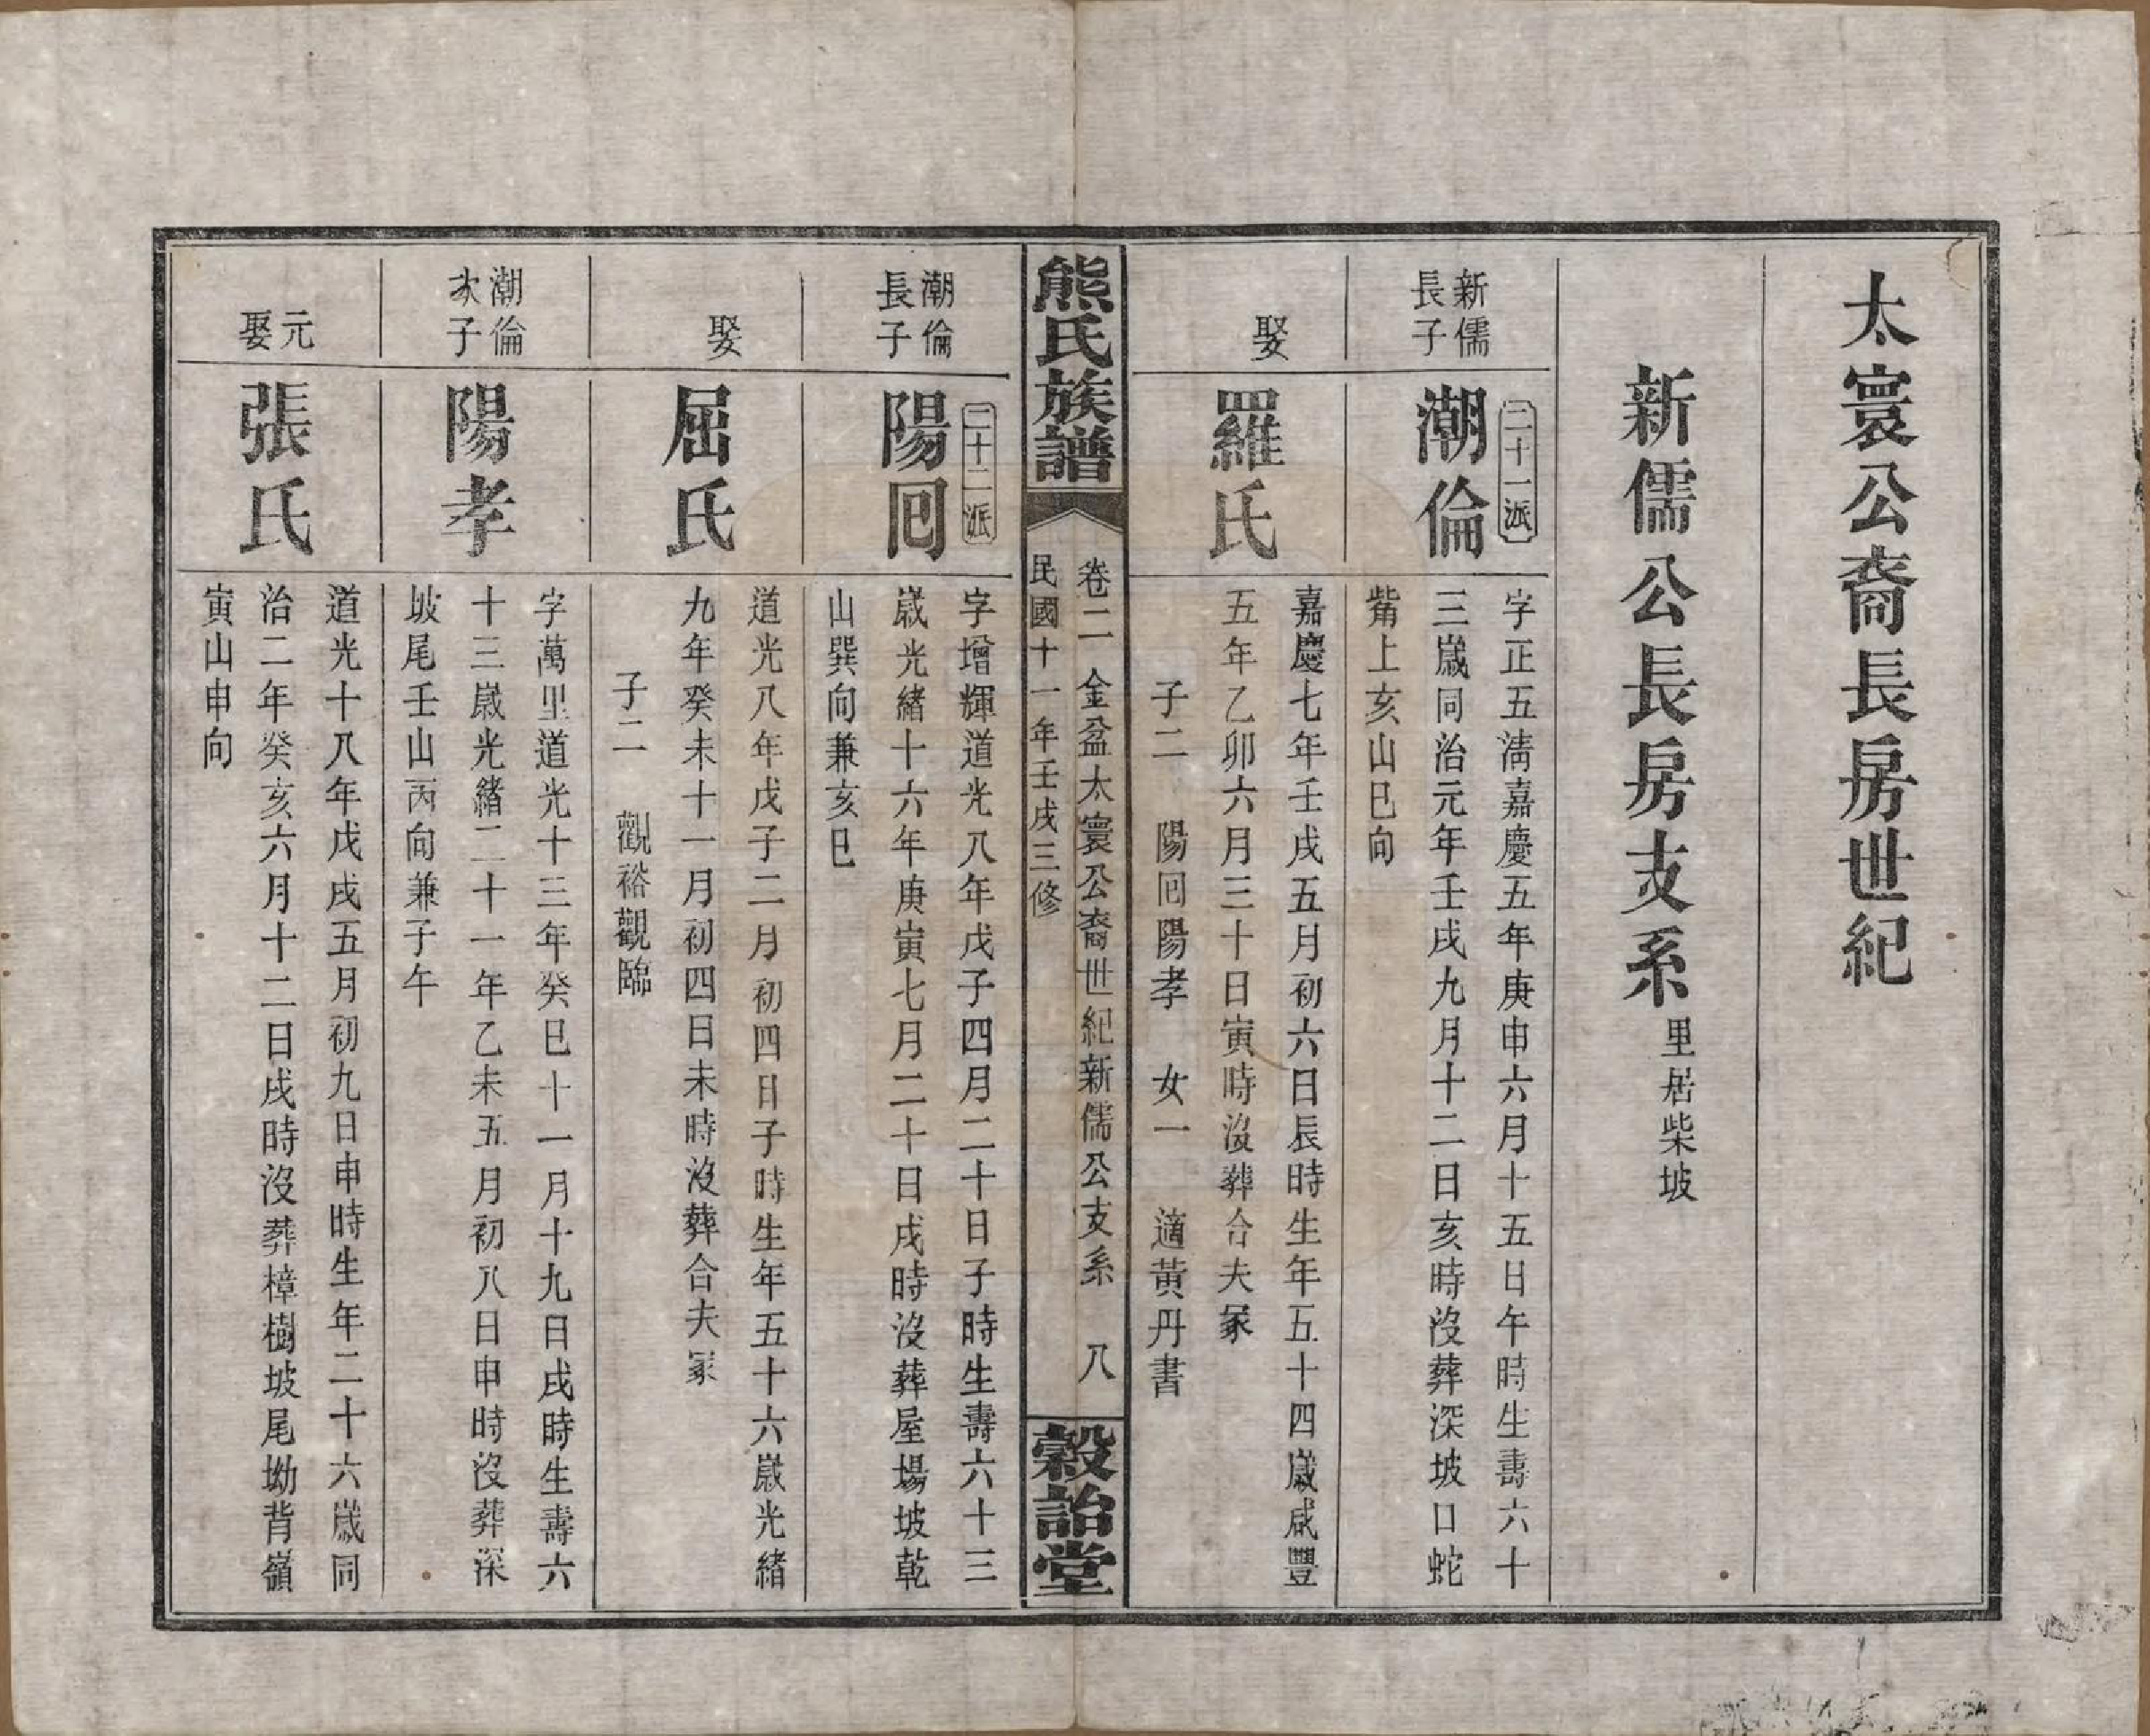 太寰公裔長房世紀
新儒公長房支系
里居柴坡
新儒
長子
二十一派
潮倫
字正五清嘉慶五年庚申六月十五日午時生壽六十
三歲同治元年壬戌九月十二日亥時沒葬深坡口蛇
觜上亥山巳向
娶
羅氏
嘉慶七年壬戌五月初六日辰時生年五十四歲咸豐
五年乙卯六月三十日寅時沒葬合夫冢
子二 陽回陽孝 女一 適黃丹書
熊氏族譜
卷二 金盆太寰公裔世紀新儒公支系 八
民國十一年壬戌三修
穀詒堂
潮倫
長子
二十二派
陽回
字增輝道光八年戊子四月二十日子時生壽六十三
歲光緒十六年庚寅七月二十日戌時沒葬屋場坡乾
山巽向兼亥巳
娶
屈氏
道光八年戊子二月初四日子時生年五十六歲光緒
九年癸未十一月初四日未時沒葬合夫冢
子二 觀裕觀臨
潮倫
次子
陽孝
字萬里道光十三年癸巳十一月十九日戌時生壽六
十三歲光緒二十一年乙未五月初八日申時沒葬深
坡尾壬山丙向兼子午
元
娶
張氏
道光十八年戊戌五月初九日申時生年二十六歲同
治二年癸亥六月十二日戌時沒葬樟樹坡尾坳背嶺
寅山申向